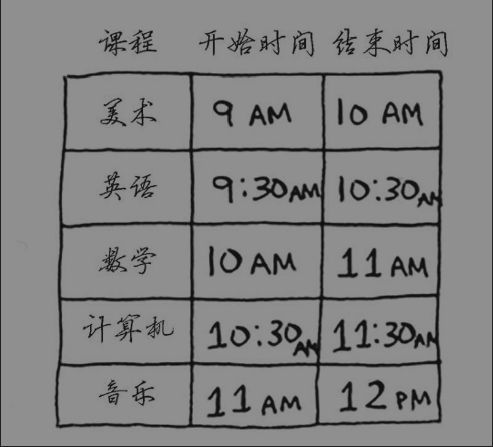 课程 开始时间 结束时间
美术 9 AM 10 AM
英语 9:30 AM 10:30 AM
数学 10 AM 11 AM
计算机 10:30 AM 11:30 AM
音乐 11 AM 12 PM